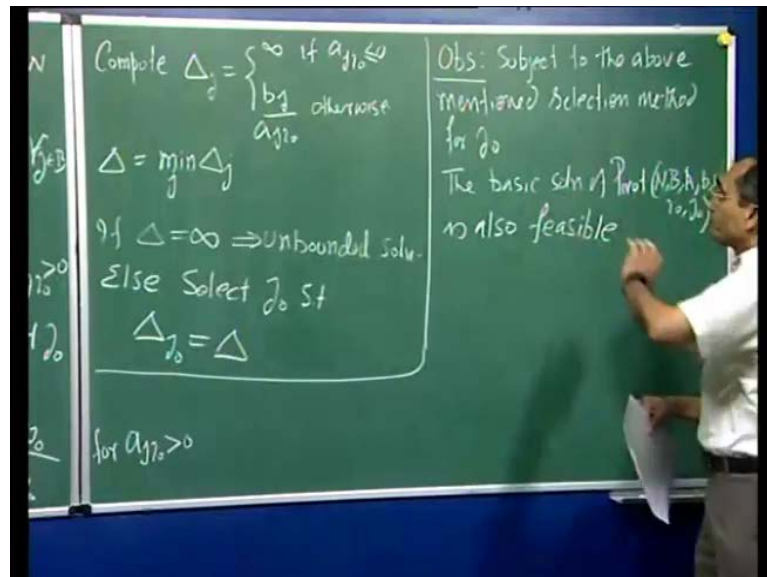 N
∀j∈B
>0
Compute Δj = { ∞ if a_jη₀ ≤ 0
bj / a_jη₀ otherwise
Δ = min_j Δj
If Δ = ∞ ⇒ unbounded soln.
Else Select j₀ St
Δj₀ = Δ
for a_jη₀ > 0
Obs: Subject to the above
mentioned selection method
for j₀
The basic soln of Pivot (N,B,A,b,
η₀, j₀)
is also feasible